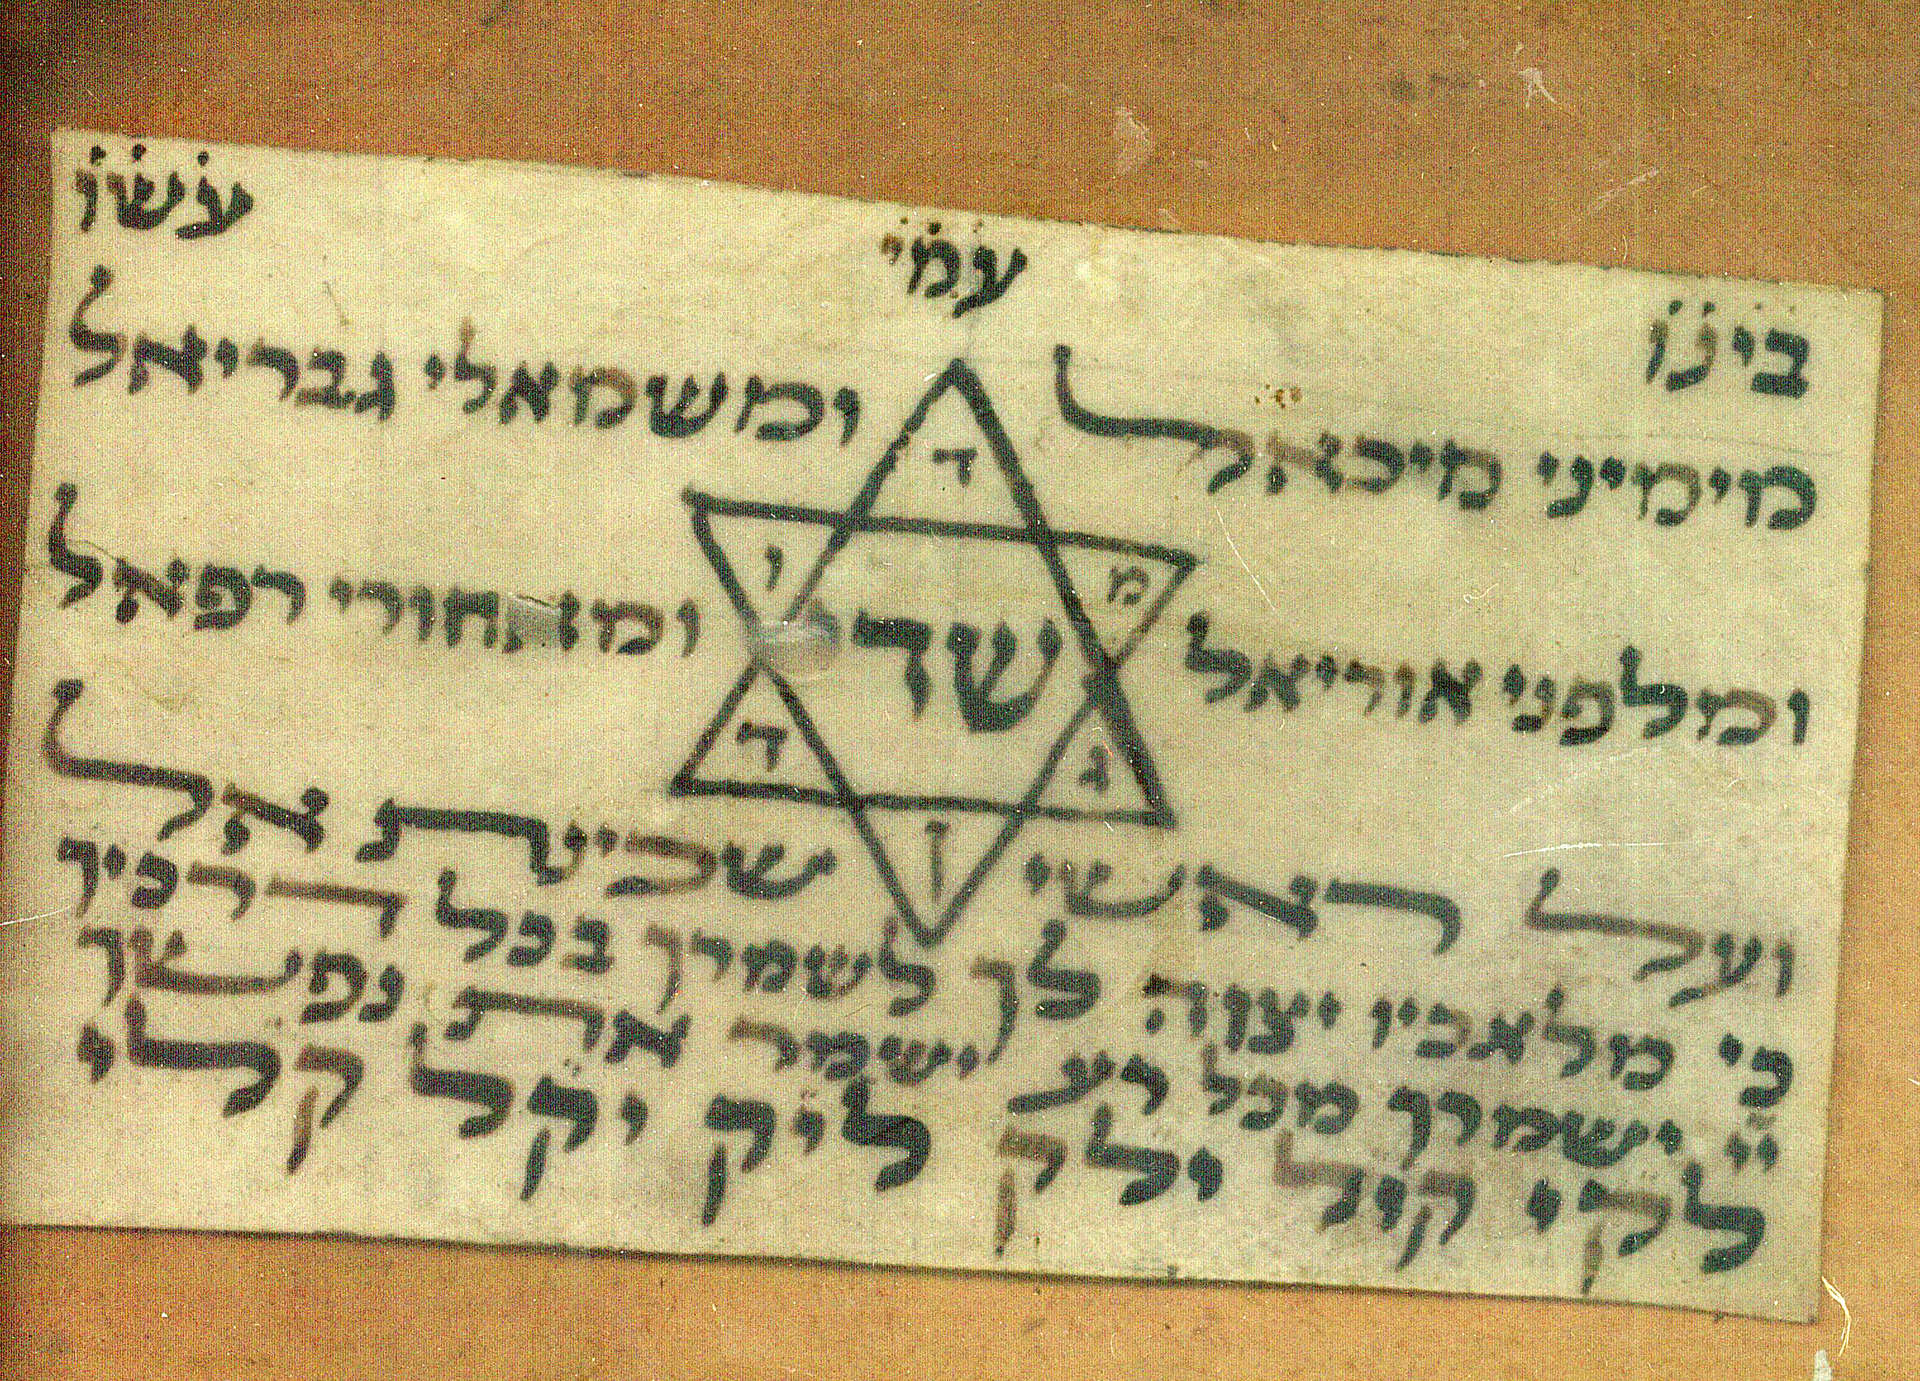 בינו עמי עשו
מימיני מיכאל ומשמאלי גבריאל
ד
מ ו
ומלפני אוריאל שדי ומאחורי רפאל
ג ד
ן
ועל ראשי שכינת אל
כי מלאכיו יצוה לך לשמרך בכל דרכיך
יי ישמרך מכל רע ישמר את נפשך
לקי קיל ילק ליק יקל קלי